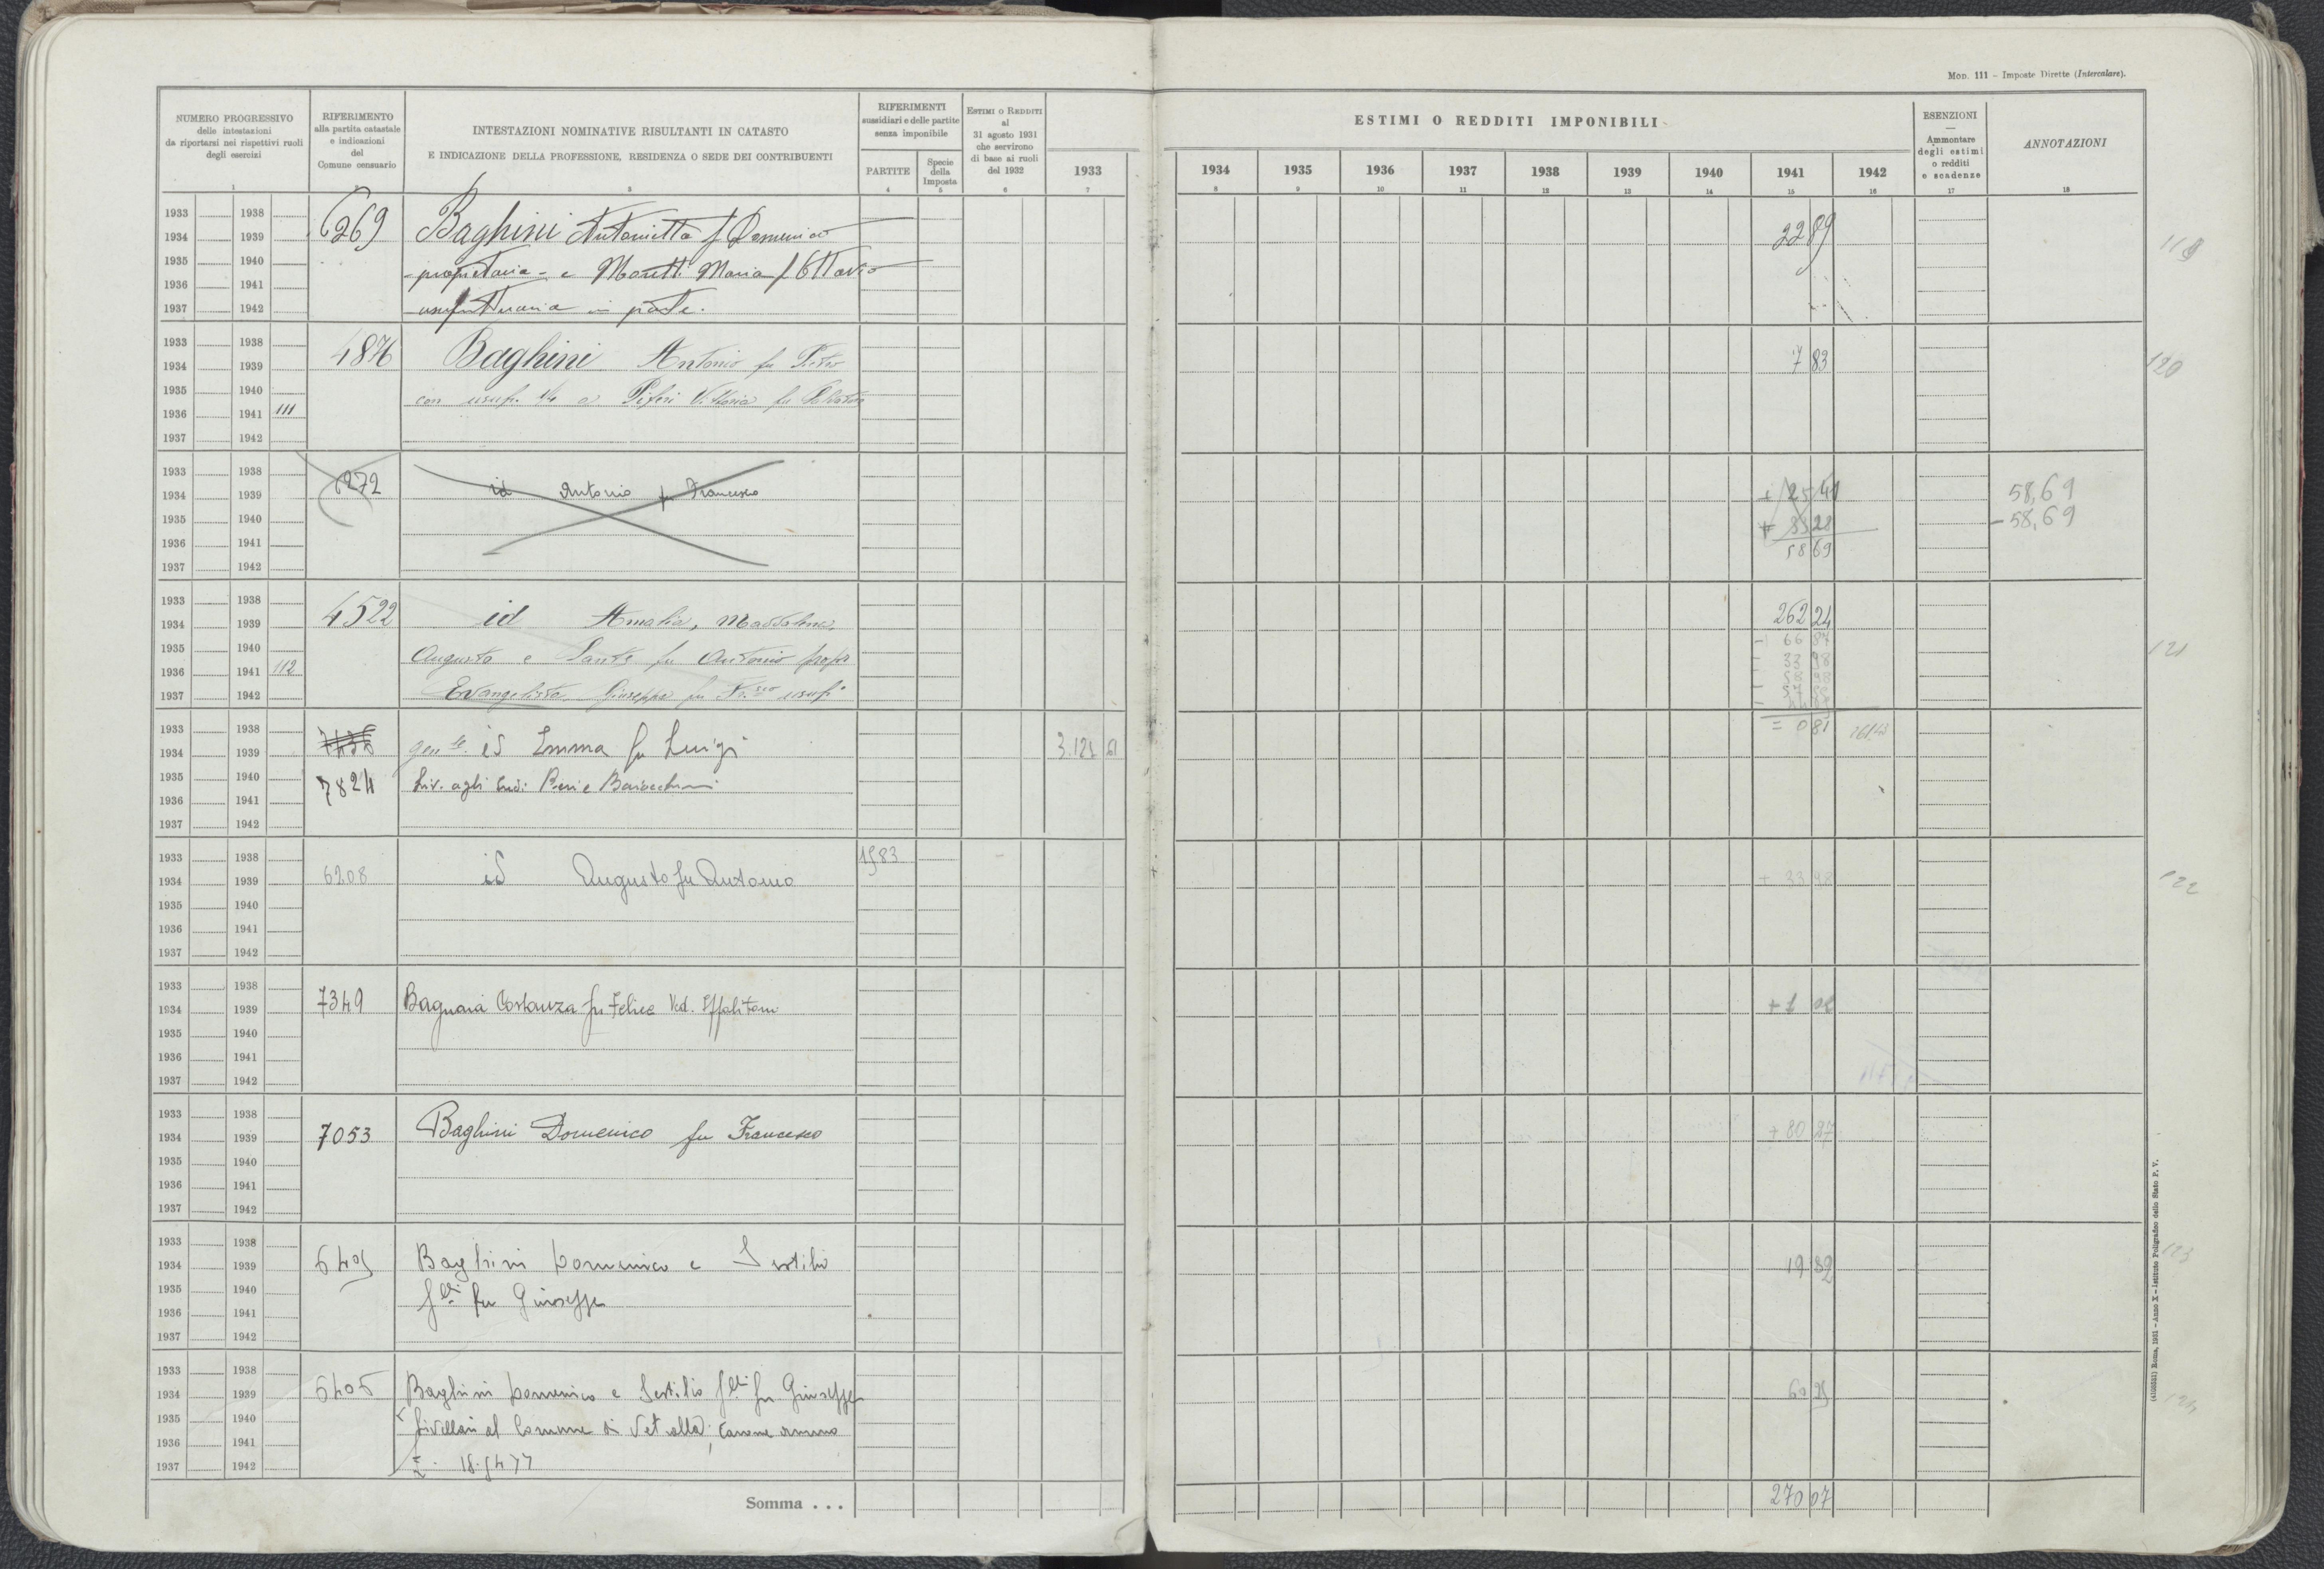 MOD. 111 – Imposte Dirette (Intercalare).
NUMERO PROGRESSIVO
delle intestazioni
da riportarsi nei rispettivi ruoli
degli esercizi
1
RIFERIMENTO
alla partita catastale
e indicazioni
del
Comune censuario
INTESTAZIONI NOMINATIVE RISULTANTI IN CATASTO
E INDICAZIONE DELLA PROFESSIONE, RESIDENZA O SEDE DEI CONTRIBUENTI
3
RIFERIMENTI
sussidiari e delle partite
senza imponibile
PARTITE
4
Specie
della
Imposta
5
ESTIMI O REDDITI
al
31 agosto 1931
che servirono
di base ai ruoli
del 1932
6
1933
7
ESTIMI O REDDITI IMPONIBILI
1934 1935 1936 1937 1938 1939 1940 1941 1942
8 9 10 11 12 13 14 15 16
ESENZIONI
—
Ammontare
degli estimi
o redditi
e scadenze
17
ANNOTAZIONI
18
1933 1938
1934 1939
1935 1940
1936 1941
1937 1942
6269
Baghini Antonietta f Domenico
- proprietaria - e Moretti Maria f Ottavio
usufruttuaria in parte.
22 89
119
1933 1938
1934 1939
1935 1940
1936 1941 111
1937 1942
4876
Baghini Antonio fu Pietro
con usuf. 1/4 a Piferi Vittoria fu Salvatore
7 83
120
1933 1938
1934 1939
1935 1940
1936 1941
1937 1942
6272
id Antonio fu Francesco
+ 25 41
+ 33 28
58 69
58,69
- 58,69
1933 1938
1934 1939
1935 1940
1936 1941 112
1937 1942
4522
id Amalia, Maddalena,
Augusto e Sante fu Antonio propr
Evangelista Giuseppa fu usuf.
262 24
- 66 87
- 33 98
- 58 98
= 0 81
121
1933 1938
1934 1939
1935 1940
1936 1941
1937 1942
7824
id Emma fu Luigi
Liv. agli
3.125
1933 1938
1934 1939
1935 1940
1936 1941
1937 1942
6208
id Augusto fu Antonio
1583
+ 33 98
122
1933 1938
1934 1939
1935 1940
1936 1941
1937 1942
7349
Bagnaia Costanza fu Felice Ved. Ippolitoni
+ 1 02
1933 1938
1934 1939
1935 1940
1936 1941
1937 1942
7053
Baghini Domenico fu Francesco
+ 80 27
1933 1938
1934 1939
1935 1940
1936 1941
1937 1942
6405
Baghini Domenico e Sestilio
f.lli fu Giuseppe
19 82
123
1933 1938
1934 1939
1935 1940
1936 1941
1937 1942
6406
Baghini Domenico e Sestilio f.lli fu Giuseppe
livellari al Comune di Vetralla; Canone annuo
£. 18.5477
60 25
124
Somma . . .
270 07
Roma, 1931 – Anno X – Istituto Poligrafico dello Stato P. V.